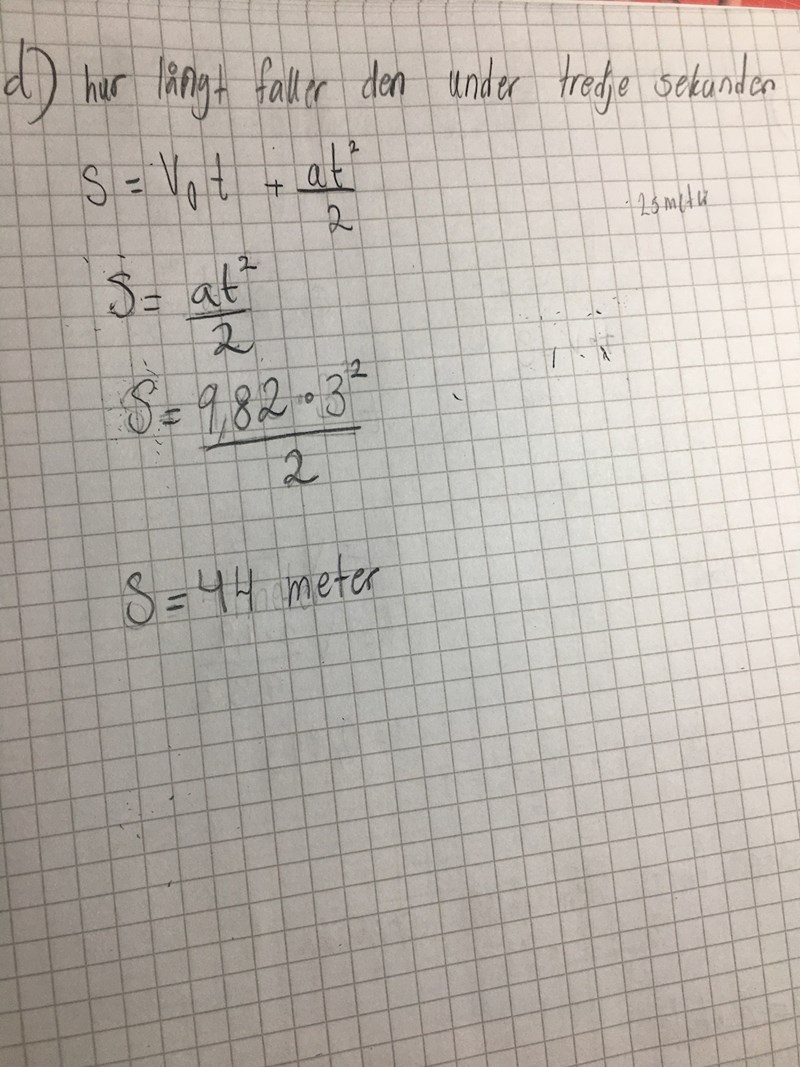 d) hur långt faller den under tredje sekunden
S = V₀t + at²/2
25 meter
S = at²/2
S = 9,82 · 3²/2
S = 44 meter